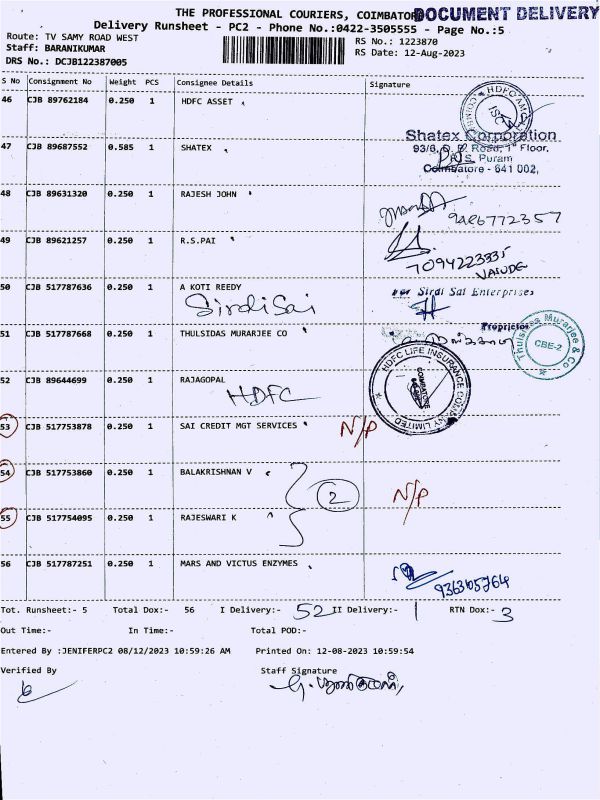 THE PROFESSIONAL COURIERS, COIMBATOR
DOCUMENT DELIVERY
Delivery Runsheet - PC2 - Phone No.:0422-3505555 - Page No.:5
Route: TV SAMY ROAD WEST
RS No.: 1223870
Staff: BARANIKUMAR
RS Date: 12-Aug-2023
DRS No.: DCJB122387005
S No Consignment No Weight PCS Consignee Details Signature
46 CJB 89762184 0.250 1 HDFC ASSET
47 CJB 89687552 0.585 1 SHATEX
Shatex Corporation
Road, 1st Floor,
R.S. Puram
Coimbatore - 641 002.
48 CJB 89631320 0.250 1 RAJESH JOHN
49 CJB 89621257 0.250 1 R.S.PAI
7094223335
50 CJB 517787636 0.250 1 A KOTI REEDY
Sirdi Sai
Sirdi Sai Enterprises
Proprietor
51 CJB 517787668 0.250 1 THULSIDAS MURARJEE CO
Thulsidas Murarjee & Co
CBE-2
52 CJB 89644699 0.250 1 RAJAGOPAL
HDFC
HDFC LIFE INSURANCE COMPANY LIMITED
COIMBATORE
53 CJB 517753878 0.250 1 SAI CREDIT MGT SERVICES N/P
54 CJB 517753860 0.250 1 BALAKRISHNAN V
2 N/P
55 CJB 517754095 0.250 1 RAJESWARI K
56 CJB 517787251 0.250 1 MARS AND VICTUS ENZYMES
Tot. Runsheet:- 5 Total Dox:- 56 I Delivery:- 52 II Delivery:- 1 RTN Dox:- 3
Out Time:- In Time:- Total POD:-
Entered By :JENIFERPC2 08/12/2023 10:59:26 AM Printed On: 12-08-2023 10:59:54
Verified By Staff Signature